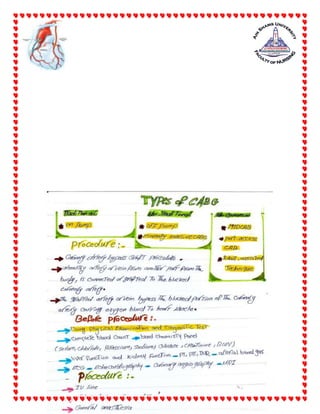 AIN SHAMS UNIVERSITY
FACULTY OF NURSING
TYPES of CABG
on pump
off pump
MIDCAB
port-access
CABG
Technique
Procedure:-
Coronary artery bypass Graft procedure.
artery or vein from another part from the
body, is connected or grafted to the blocked
coronary artery.
The grafted artery or vein bypass the blocked portion of the coronary
artery carrying oxygen blood to heart muscle.
Before procedure:-
Physical examination and Diagnostic Test
complete blood count blood chemistry panel
(sodium, chloride, potassium, creatinine, BUN)
function and kidney function PT, PTT, INR arterial blood gas
ECG Echocardiography coronary angiography MRI
Procedure:-
IV line
General anesthesia